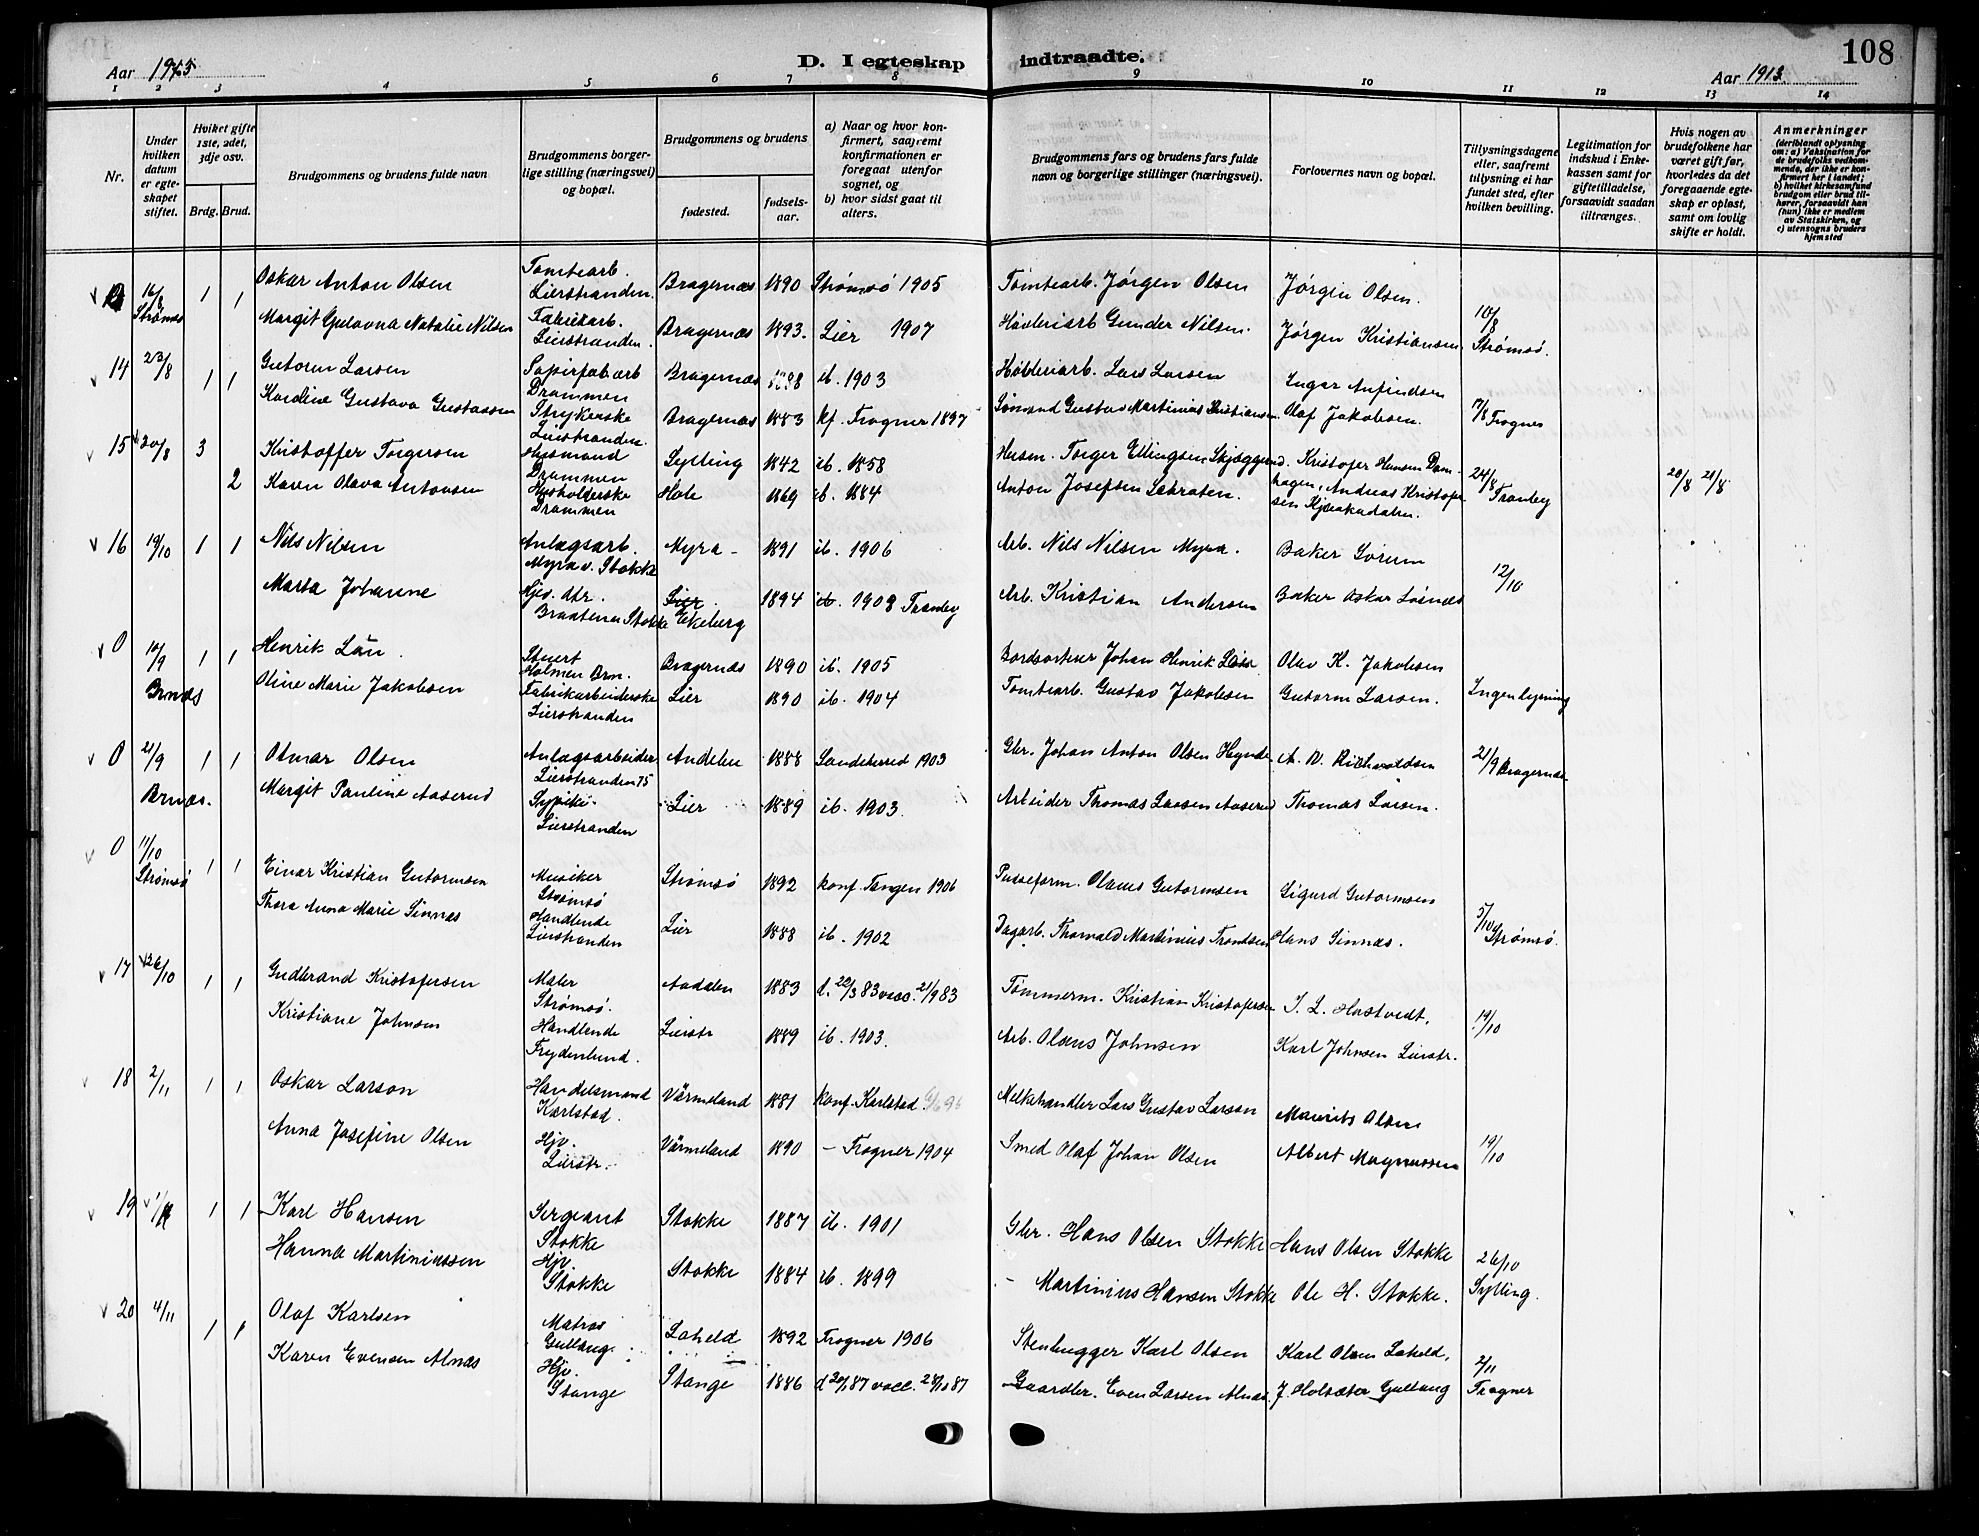 Aar 1913
D. I egteskap indtraadte.
Aar 1913.
108
1 2 3 4 5 6 7 8 9 10 11 12 13 14
Nr.
Under hvilken datum er egteskapet stiftet.
Hvilket gifte 1ste, 2det, 3dje osv.
Brdg. Brud.
Brudgommens og brudens fulde navn
Brudgommens borgerlige stilling (næringsvei) og bopæl.
Brudgommens og brudens
fødested.
fødselsaar.
a) Naar og hvor konfirmert, saafremt konfirmationen er foregaat utenfor sognet, og
b) hvor sidst gaat til alters.
Brudgommens fars og brudens fars fulde navn og borgerlige stillinger (næringsvei).
Forlovernes navn og bopæl.
Tillysningsdagene eller, saafremt tillysning ei har fundet sted, efter hvilken bevilling.
Legitimation for indskud i Enkekassen samt for giftetilladelse, forsaavidt saadan tiltrænges.
Hvis nogen av brudefolkene har været gift før, hvorledes da det foregaaende egteskap er opløst, samt om lovlig skifte er holdt.
Anmerkninger (deriblandt oplysning om: a) Vaksination for de brudefolks vedkommende, der ikke er konfirmert her i landet; b) hvilket kirkesamfund brudgom eller brud tilhører, forsaavidt han (hun) ikke er medlem av Statskirken, og c) utensogns bruders hjemsted
0 16/8 Strømsø 1 1 Oskar Anton Olsen Tomtearb. Lierstranden. Bragernæs 1890 Strømsø 1905 Tomtearb. Jørgen Olsen Jørgen Olsen.
Margit Gulovna Natalie Nilsen Fabrikarb. Lierstranden. Bragernæs 1893. Lier 1907 Høvleriarb Gunder Nilsen. Jørgen Kristiansen 10/8 Strømsø.
14 23/8 1 1 Gutorm Larsen Papirfabarb Drammen Bragernæs 1888 ib. 1903 Høvleriarb. Lars Larsen Ingar Anfindsen
Karoline Gustava Gustavsen Strykerske Lierstranden. Bragernæs 1883 kf. Frogner 1897 Sømand Gustav Martinius Kristiansen Olaf Jakobsen. 17/8 Frogner
15 20/8 3 Kristoffer Torgersen Husmand Drammen Sylling 1842 ib. 1858 Husm. Torger Ellingsen Skjæggerud Kristofer Hansen Damhagen, Andreas Kristofersen
2 Karen Olava Antonsen Husholderske Drammen Hole 1869 ib. 1884 Anton Josefsen 24/8 Tranby 20/8 21/8
16 19/10 1 1 Nils Nilsen Anlægsarb. Myra v. Stokke Myra - 1891 ib. 1906 Arb. Nils Nilsen Myra. Baker Sørum
Marta Johanne Hjv. dtr. Braatene Stokke Ekeberg 1894 ib. 1908 Tranby Arb. Kristian Andersen Baker Oskar Løsnes 12/10
0 10/9 Brnæs 1 1 Henrik Lön. Stuert Holmen Brn. Bragernæs 1890 ib. 1905 Bordsorterer Johan Henrik Olav K. Jakobsen
Oline Marie Jakobsen Fabrikarbeiderske Lierstranden Lier 1890 ib. 1904 Tomtearb. Gustav Jakobsen Gutorm Larsen. Ingen lysning
0 21/9 Brnæs. 1 1 Otmar Olsen Anlægsarbeider Lierstranden 75 Andebu 1888 Sandeherred 1903 Gbr. Johan Anton Olsen A. D. Richvoldsen 21/9 Bragernæs
Margit Pauline Aaserud Sypike. Lierstranden Lier 1889 ib. 1903. Arbeider Thomas Larsen Aaserud Thomas Larsen.
0 11/10 Strømsø 1 1 Einar Kristian Gutormsen Musiker Strømsø Strømsø 1892 konf. Tangen 1906 Pudseform. Olaus Gutormsen Sigurd Gutormsen
Thora Anna Marie Sinnes Handlende Lierstranden Lier 1888 ib. 1902 Dagarb. Thorvald Martinius Trondsen Hans Sinnes. 5/10 Strømsø.
17 26/10 1 1 Gudbrand Kristofersen Maler Strømsø. Aadalen 1883 d. 22/3 83 vacc. 21/9 83 Tømmerm. Kristian Kristofersen I. L. Hastvedt,
Kristiane Johnsen Handlende Frydenlund. Lierstr 1889 ib. 1903. Arb. Olaus Johnsen Karl Johnsen Lierstr. 19/10
18 2/11 1 1 Oskar Larson Handelsmand Karlstad. Värmeland 1881 konf. Karlstad Melkehandler Lars Gustav Larson Maurits Olsen
Anna Josefine Olsen Hjv. Lierstr. Värmeland 1890 - Frogner 1904 Smed Olaf Johan Olsen Albert Magnussen 19/10
19 1/11 1 1 Karl Hansen Sergeant Stokke Stokke 1887 ib. 1901 Gbr. Hans Olsen Stokke Hans Olsen Stokke
Hanna Martiniussen Hjv. Stokke Stokke 1884 ib. 1899 - Martinius Hansen Stokke Ole H. Stokke. 26/10 Sylling.
20 4/11 1 1 Olaf Karlsen Matros Gullaug Laheld 1892 Frogner 1906 Stenhugger Karl Olsen Karl Olsen Laheld,
Karen Evensen Alnæs Hjv. Stange Stange 1886 Gaardbr. Even Larsen Alnæs. J. Holsæter Gullaug 2/11 Frogner